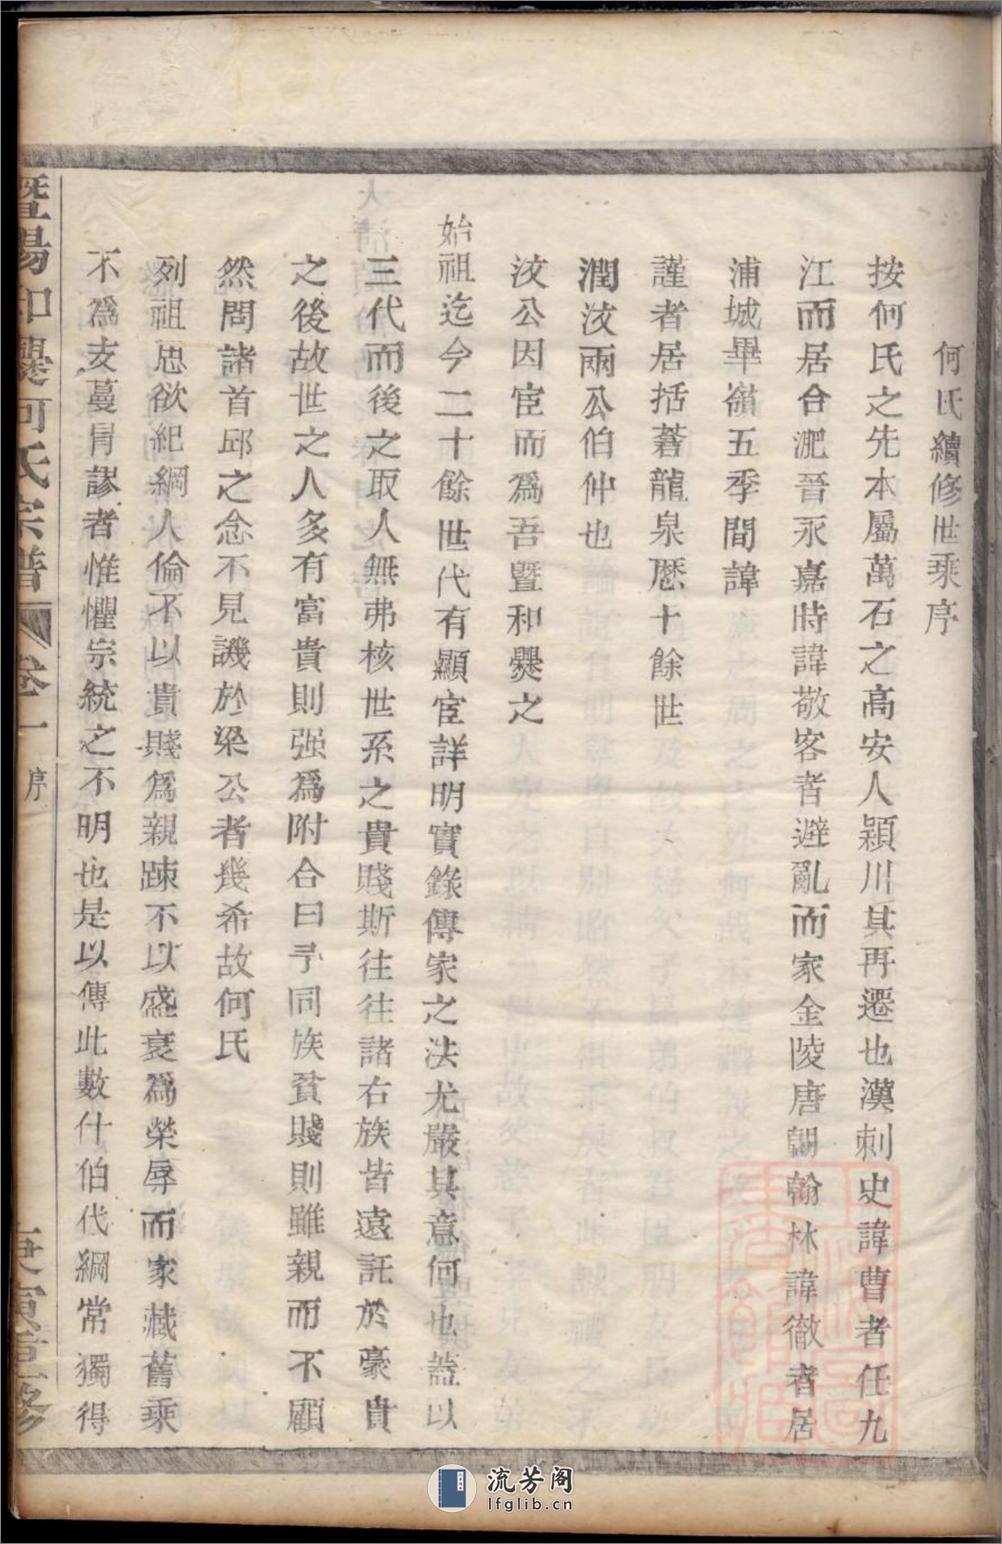 何氏續修世乘序
按何氏之先本屬萬石之高安人潁川其再遷也漢刺史諱曹者任九
江而居合淝晉永嘉時諱敬客者避亂而家金陵唐朝翰林諱徹者居
浦城畢嶺五季間諱
謹者居括蒼龍泉歷十餘世
潤汶兩公伯仲也
汶公因宦而爲吾暨和爨之
始祖迄今二十餘世代有顯宦詳明實錄傳家之法尤嚴其意何也蓋以
三代而後之取人無弗核世系之貴賤斯往往諸右族皆遠託於豪貴
之後故世之人多有富貴則强爲附合曰予同族貧賤則雖親而不顧
然問諸首邱之念不見譏於梁公者幾希故何氏
列祖思欲紀綱人倫不以貴賤爲親踈不以盛衰爲榮辱而家藏舊乘
不爲支蔓冐謬者惟懼宗統之不明也是以傳此數什伯代綱常獨得
暨陽和爨何氏宗譜 卷一 序 庚寅重修
流芳阁
lfglib.cn